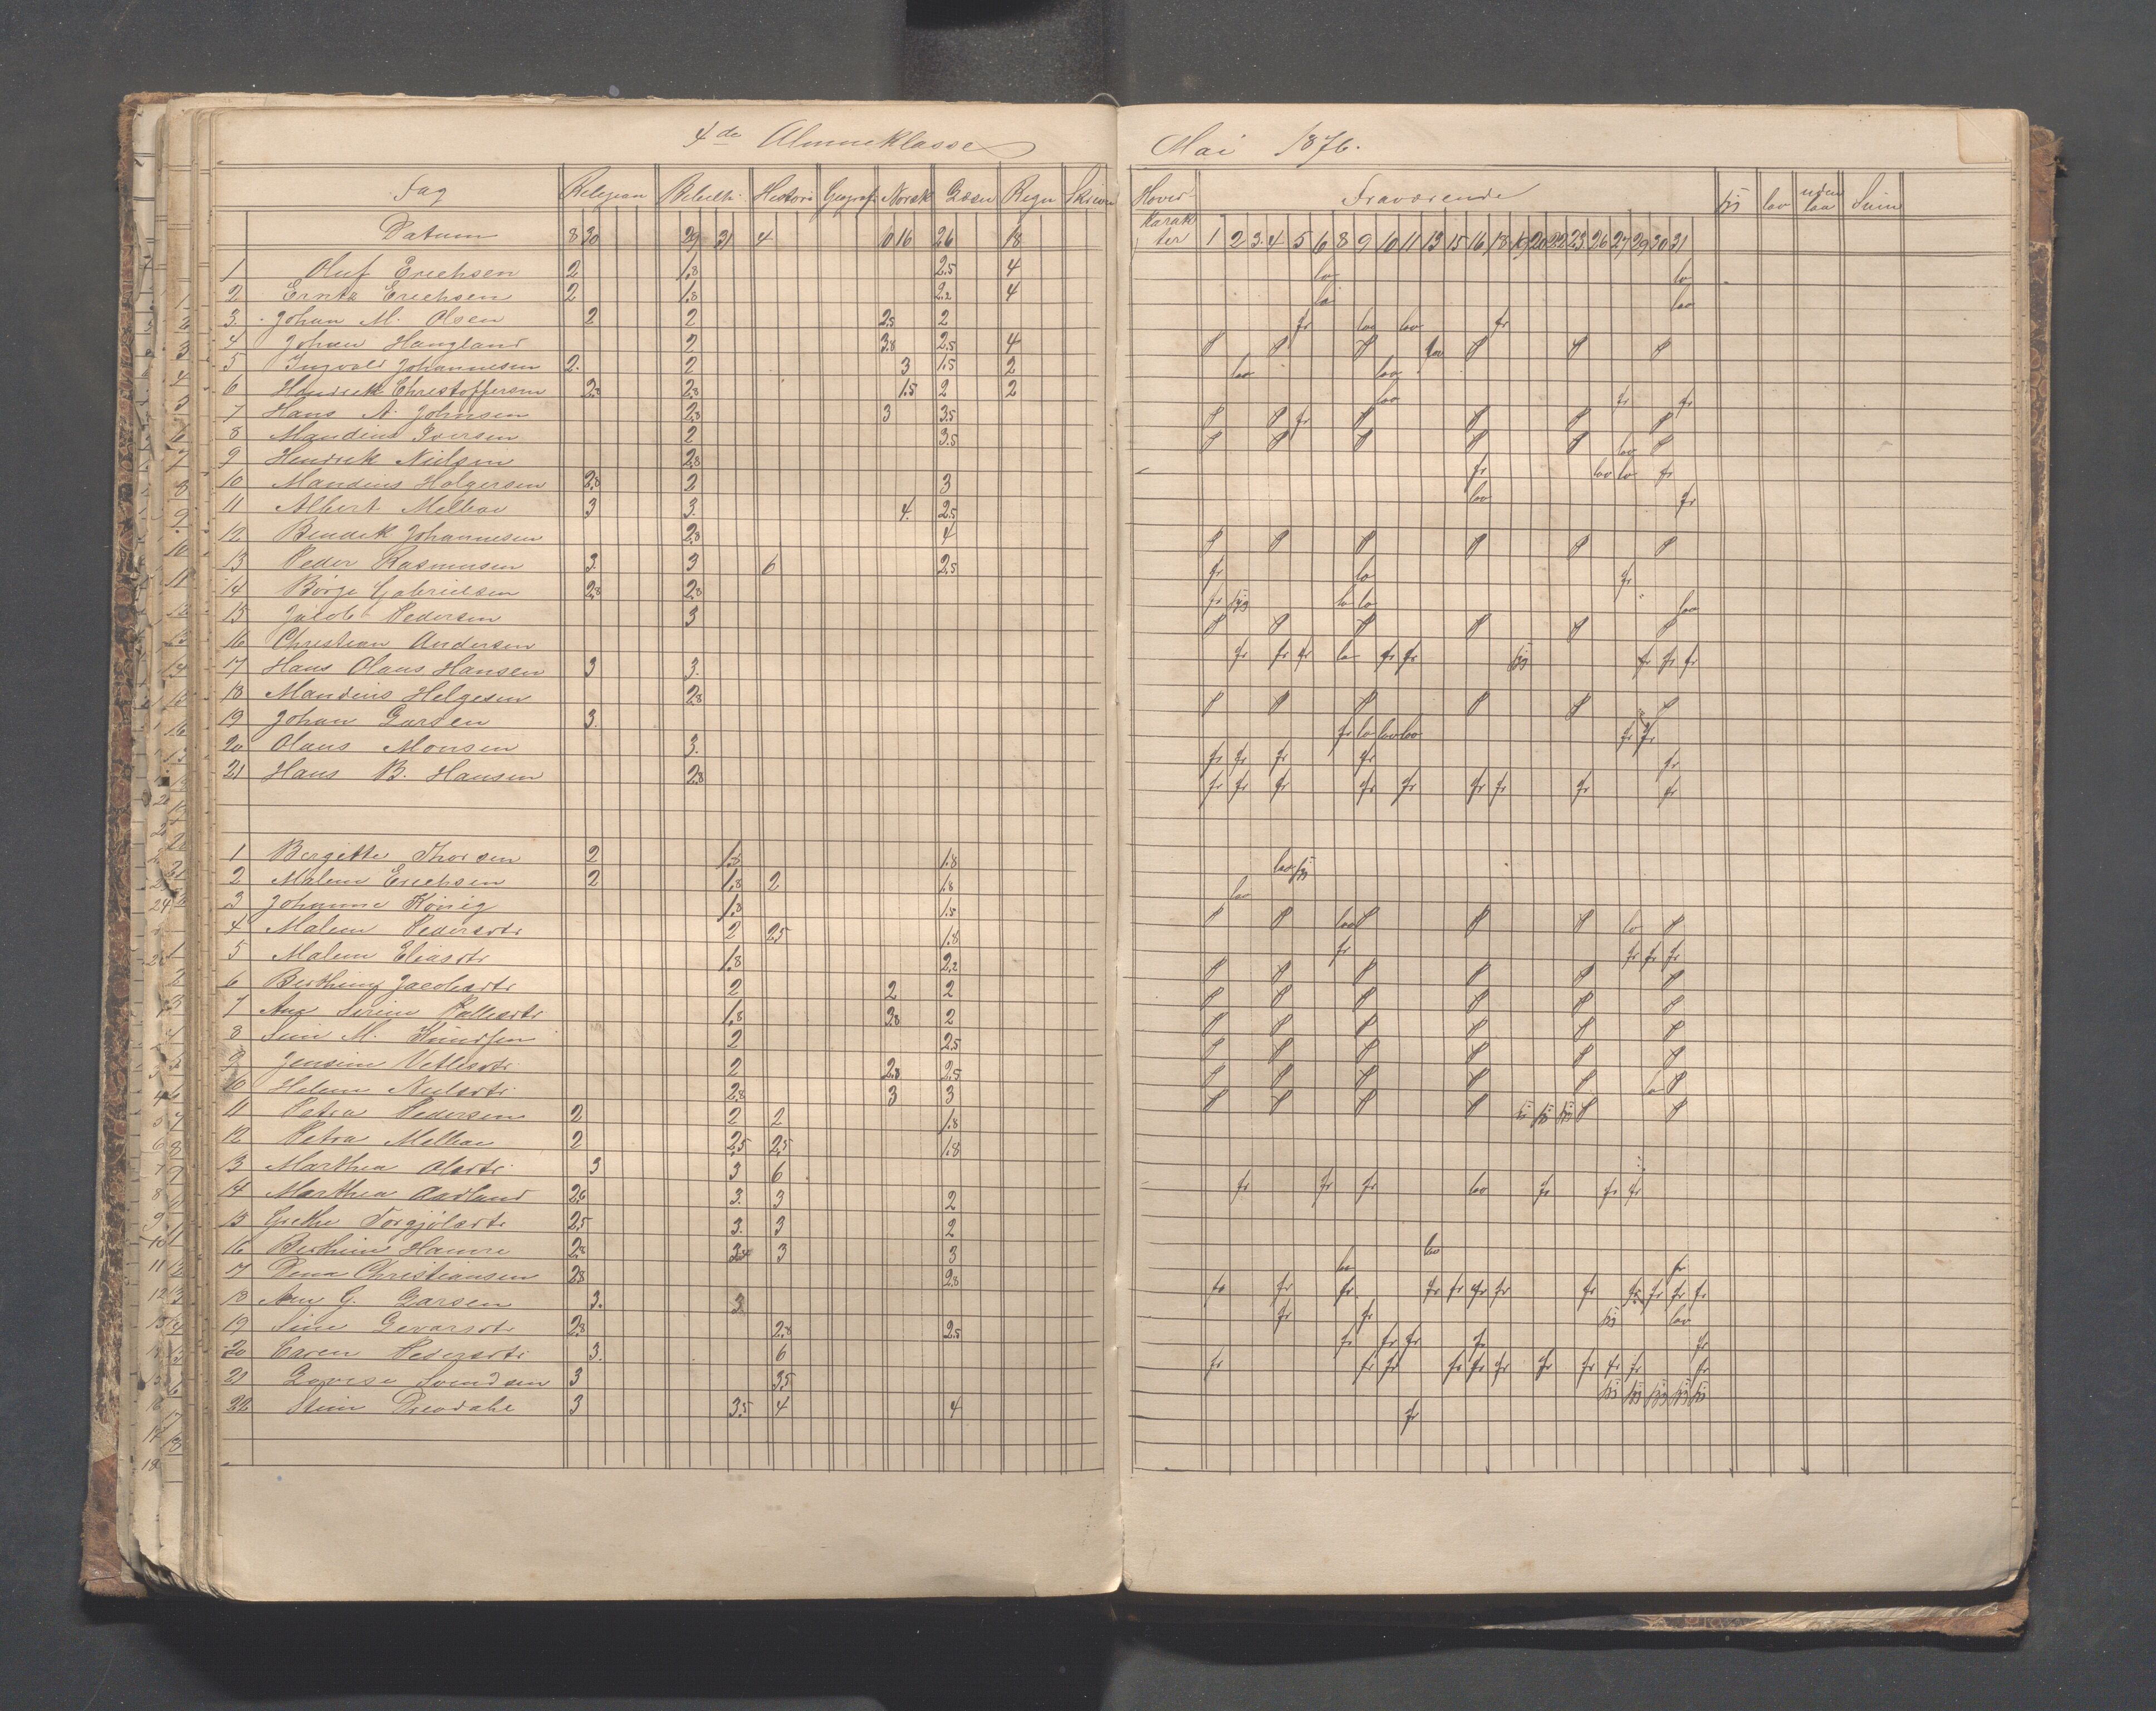 4de Almueklasse
Mai 1876.
Fag Religion Bibelh. Historie Geograf. Norsk Læsn Regn Skrivn Hoved- Fraværende syg lov uden lov Sum
Datum 8 30 29 31 4 10 16 26 18 karakter 1 2 3 4 5 6 8 9 10 11 13 15 16 18 19 20 22 23 26 27 29 30 31
1 Oluf Erichsen 2 1.8 2.5 4 lov lov
2 Ernts Erichsen 2 1.8 2.2 4 lov lov
3. Johan M. Olsen 2 2 2.5 2 fr lov lov fr
4 Johan Haugland 2 3.8 2.5 4 lov
5 Ingvald Johannesen 2. 2 3 1.5 2 lov lov
6 Hendrik Christoffersen 2.8 2.8 1.5 2 2 lov fr fr
7 Hans A. Johnsen 2.8 3 3.5 fr
8 Mandius Iversen 2 3.5 lov
9 Hendrik Nielsen 2.8 fr lov lov fr
10 Mandius Holgersen 2.8 2 3 lov fr
11 Albert Melbae 3 3. 4. 2.5
12 Bendik Johannesen 2.8 4
13 Peder Rasmussen 3. 3 6 2.5 fr lo fr
14 Børge Gabrielsen 2.8 2.8 fr syg lo lo lov
15 Jacob Pedersen 3
16 Christian Andersen fr fr fr lo fr fr syg fr fr fr
17 Hans Olaus Hansen 3 3.
18 Mandius Helgesen 2.8
19 Johan Larsen 3. fr lo lov lov fr fr
20 Olaus Monsen 3. fr fr fr fr fr
21 Hans B. Hansen 2.8 fr fr fr fr fr fr fr fr fr
1 Bergitte Thorsen 2 1.8 1.8 lov syg
2 Malene Erichsen 2 1.8 2 1.8 lov
3 Johanne König 1.8 1.8 lov lo
4 Malene Pedersdtr 2 2.5 1.8 fr fr fr fr
5 Malene Eliasdtr 1.8 2.2
6 Berthine Jacobsdtr 2 2 2
7 Ane Serine Pallesdtr 1.8 3.8 2
8 Sine M. Knudsen 2 2.5
9 Jensine Vetlesdtr 2 2.8 2.5 lo
10 Helene Nielsdtr 2.8 3 3 syg syg syg
11 Petra Pedersen 2 2 2 1.8
12 Petra Melbae 2 2.5 2.5 1.8
13 Marthea Olsdtr 3 3 6 fr fr fr lov fr fr fr
14 Marthea Aadland 2.6 3. 3 2
15 Grethe Torgjølsdtr 2.5 3. 3 2 lo
16 Berthine Hamre 2.8 3 3 lov fr
17 Dina Christiansen 2.8 2.8 fr fr fr fr fr fr fr fr fr fr fr fr
18 Ane G. Larsen 3. 3 fr fr syg lov
19 Sine Gevarsdtr 2.8 2.8 2.5 fr fr fr fr fr
20 Caren Pedersdtr 3. 6 fr fr fr fr fr fr fr fr fr fr fr
21 Lovise Svendsen 3 3.5 syg syg syg syg syg
22 Stine Dreodahl 3 3.5 4 4 fr